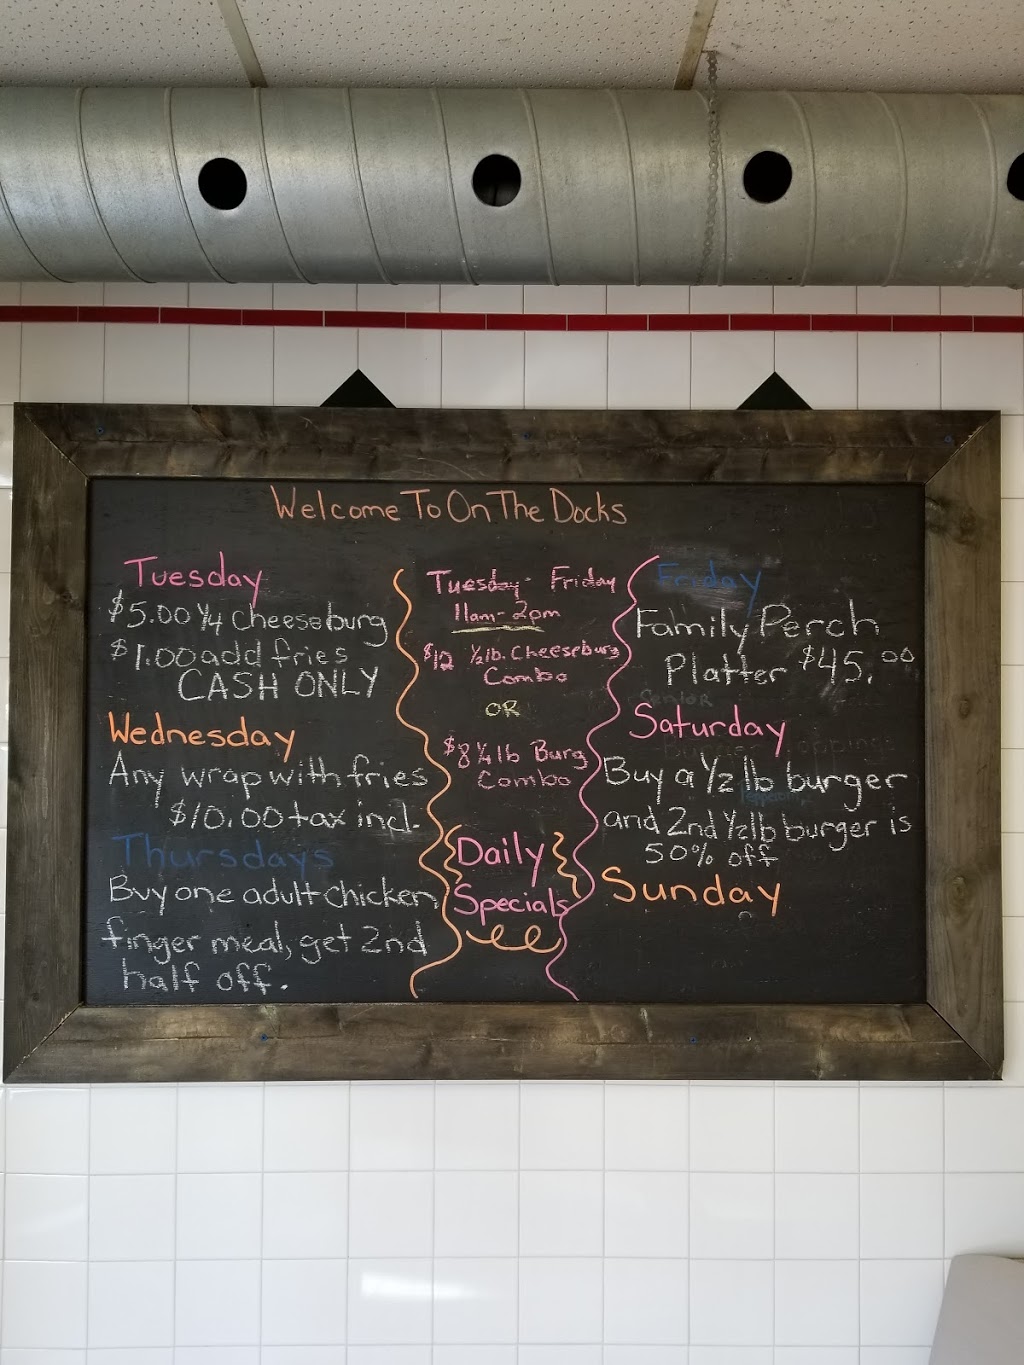 Welcome To On The Docks
Tuesday
$5.00 1/4 Cheeseburg
$1.00 add fries
CASH ONLY
Wednesday
Any wrap with fries
$10.00 tax incl.
Thursdays
Buy one adult chicken
finger meal, get 2nd
half off.
Tuesday - Friday
11am - 2pm
$12 1/2 lb. Cheeseburg
Combo
OR
$8 1/4 lb Burg
Combo
Daily
Specials
Friday
Family Perch
Platter $45.00
Saturday
Buy a 1/2 lb burger
and 2nd 1/2 lb burger is
50% off
Sunday